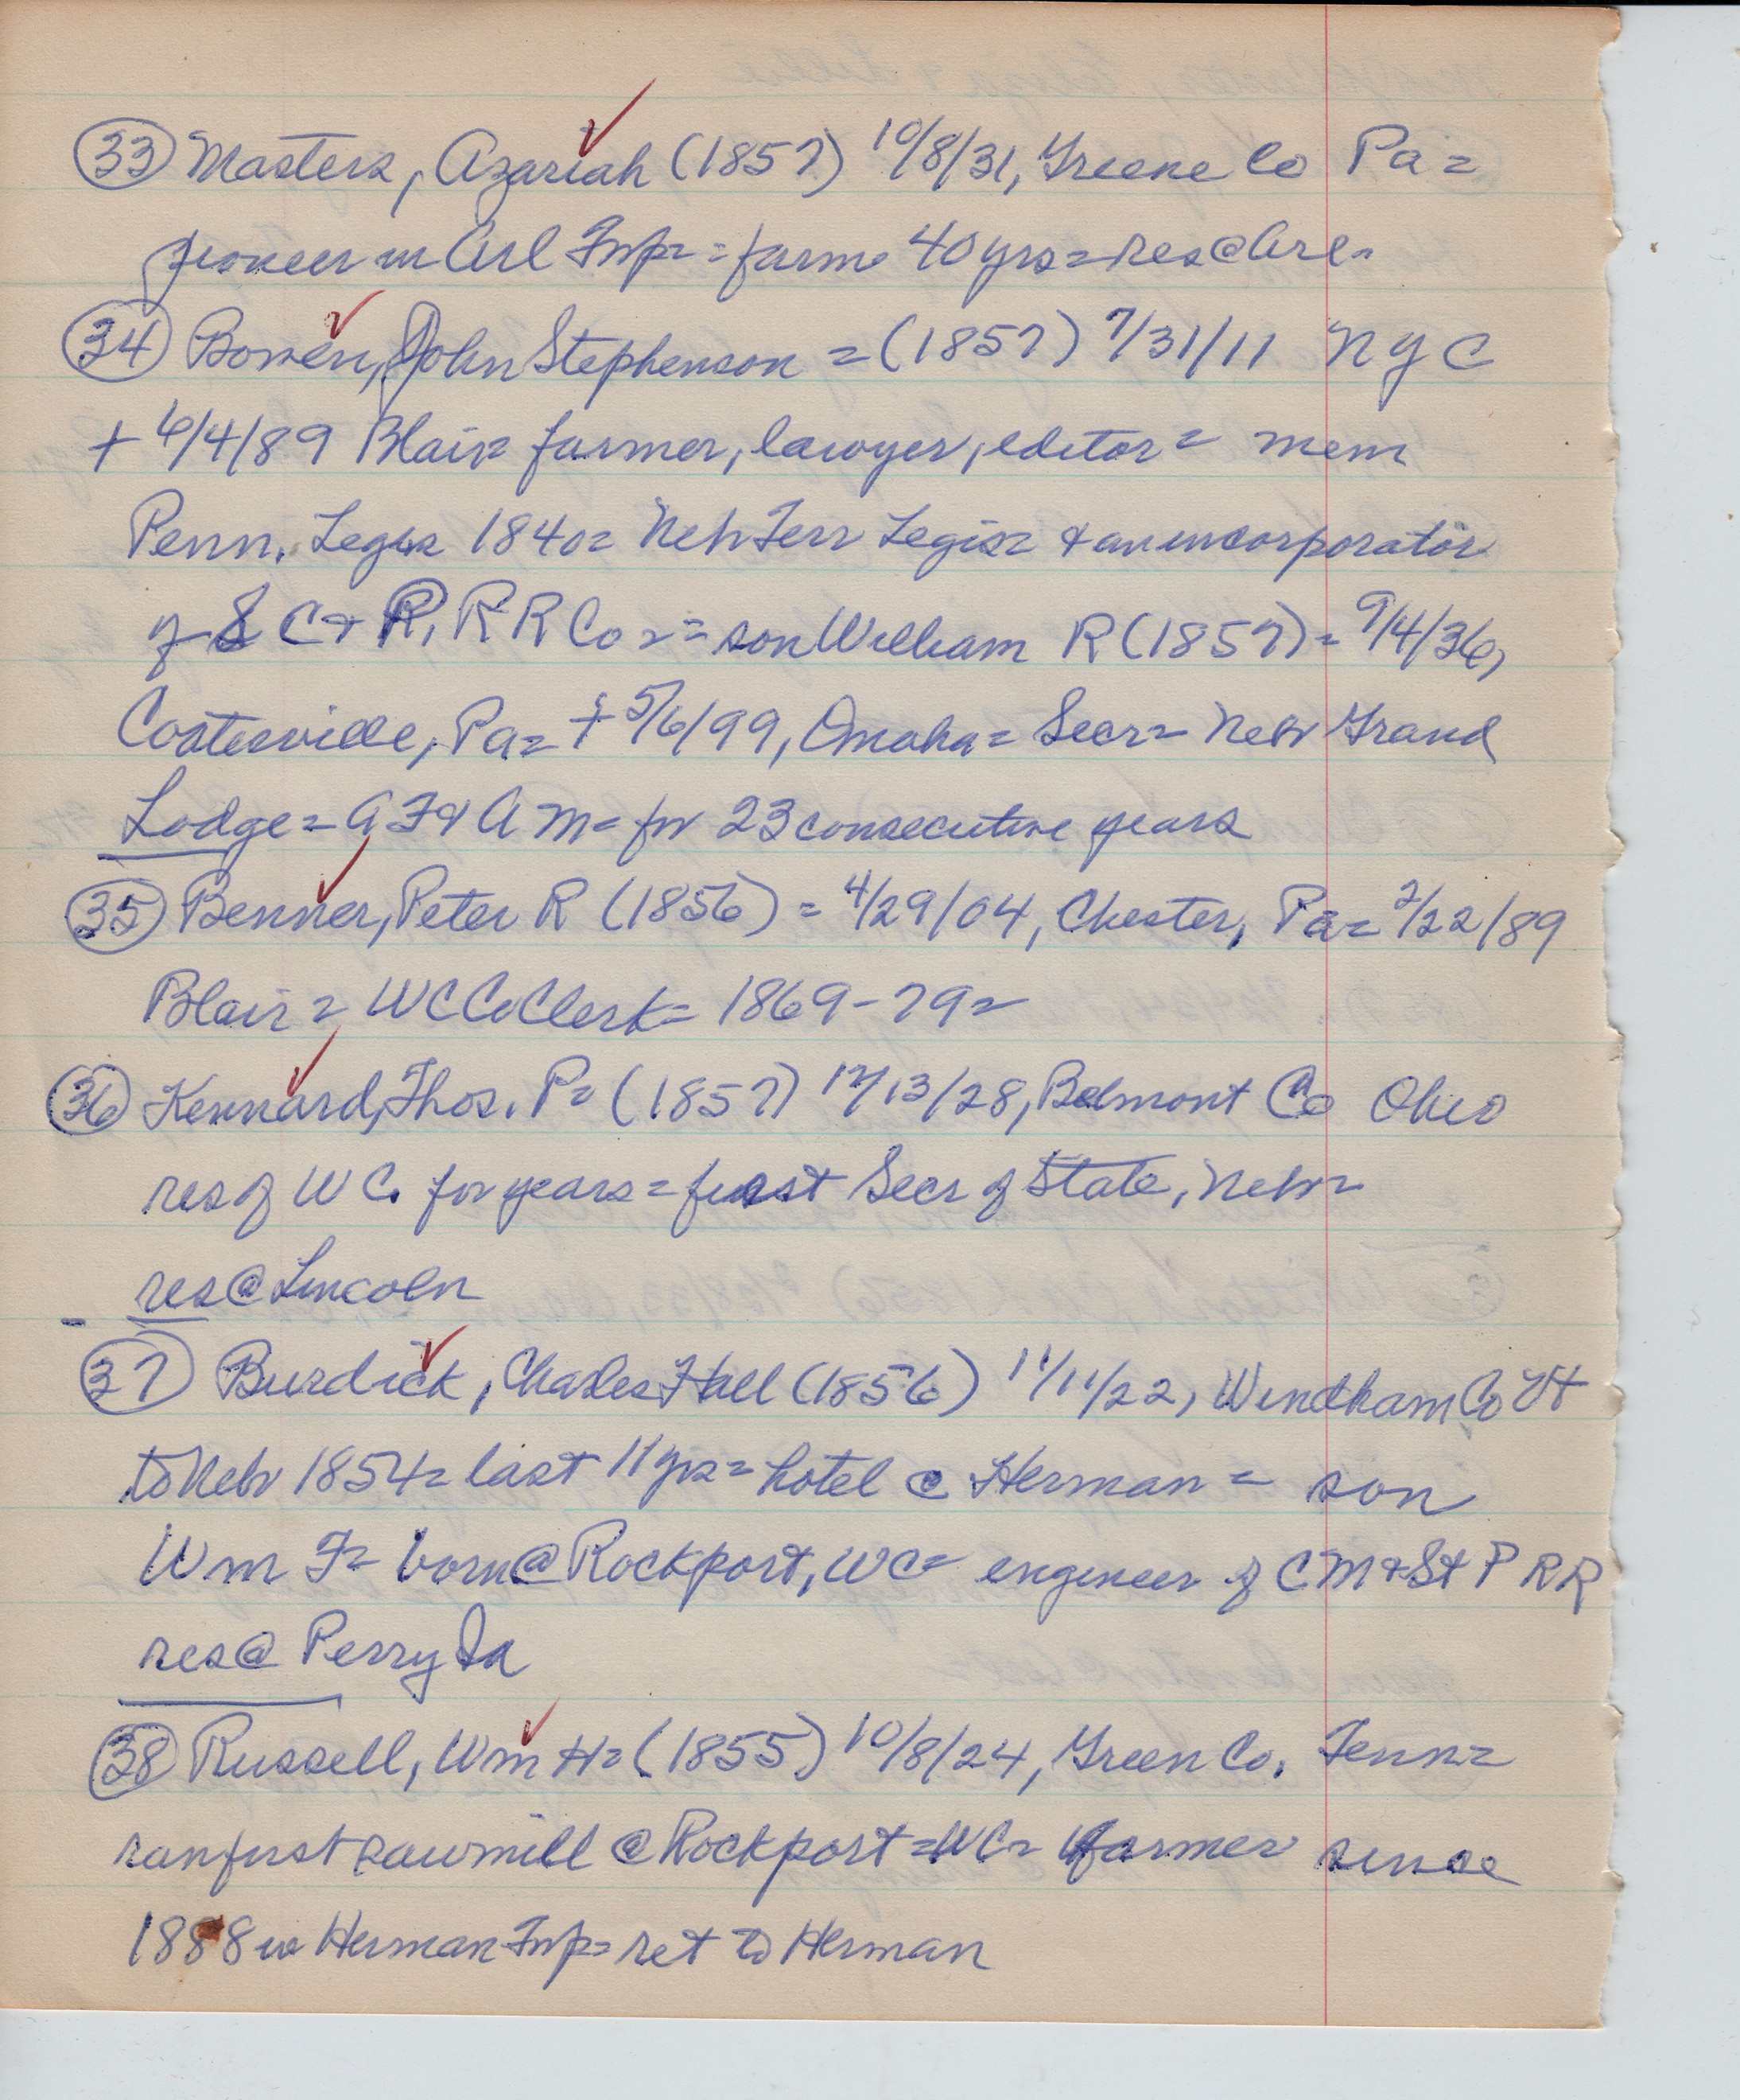 33 Masters, Azariah (1857) 10/8/31, Greene Co Pa =
pioneer in Arl Twp = = farm 40 yrs = res @ Arl.
34 Bowen, John Stephenson = (1857) 7/31/11 NYC
+ 6/4/89 Blair = farmer, lawyer, editor = mem
Penn. Legis 1840 = Neb Terr Legis = & an incorporator
of S C & P, R R Co = = son William R (1857) = 9/4/36,
Coatesville, Pa = + 5/6/99, Omaha = Secr = Nebr Grand
Lodge = A F & A M = for 23 consecutive years
35 Benner, Peter R (1856) = 4/29/04, Chester, Pa = 2/22/89
Blair = WC Co Clerk = 1869-79 =
36 Kennard, Thos. P = (1857) 12/13/28, Belmont Co Ohio
res of WC. for years = first Secr of State, Nebr =
res @ Lincoln
37 Burdick, Charles Hall (1856) 11/11/22, Windham Co Vt
to Nebr 1854 = last 11 yrs = hotel @ Herman = son
Wm F = born @ Rockport, WC = engineer of C M & St P RR
res @ Perry Ia
38 Russell, Wm H = (1855) 10/8/24, Green Co. Tenn =
ran first sawmill @ Rockport = WC = farmer since
1888 in Herman Twp = ret to Herman